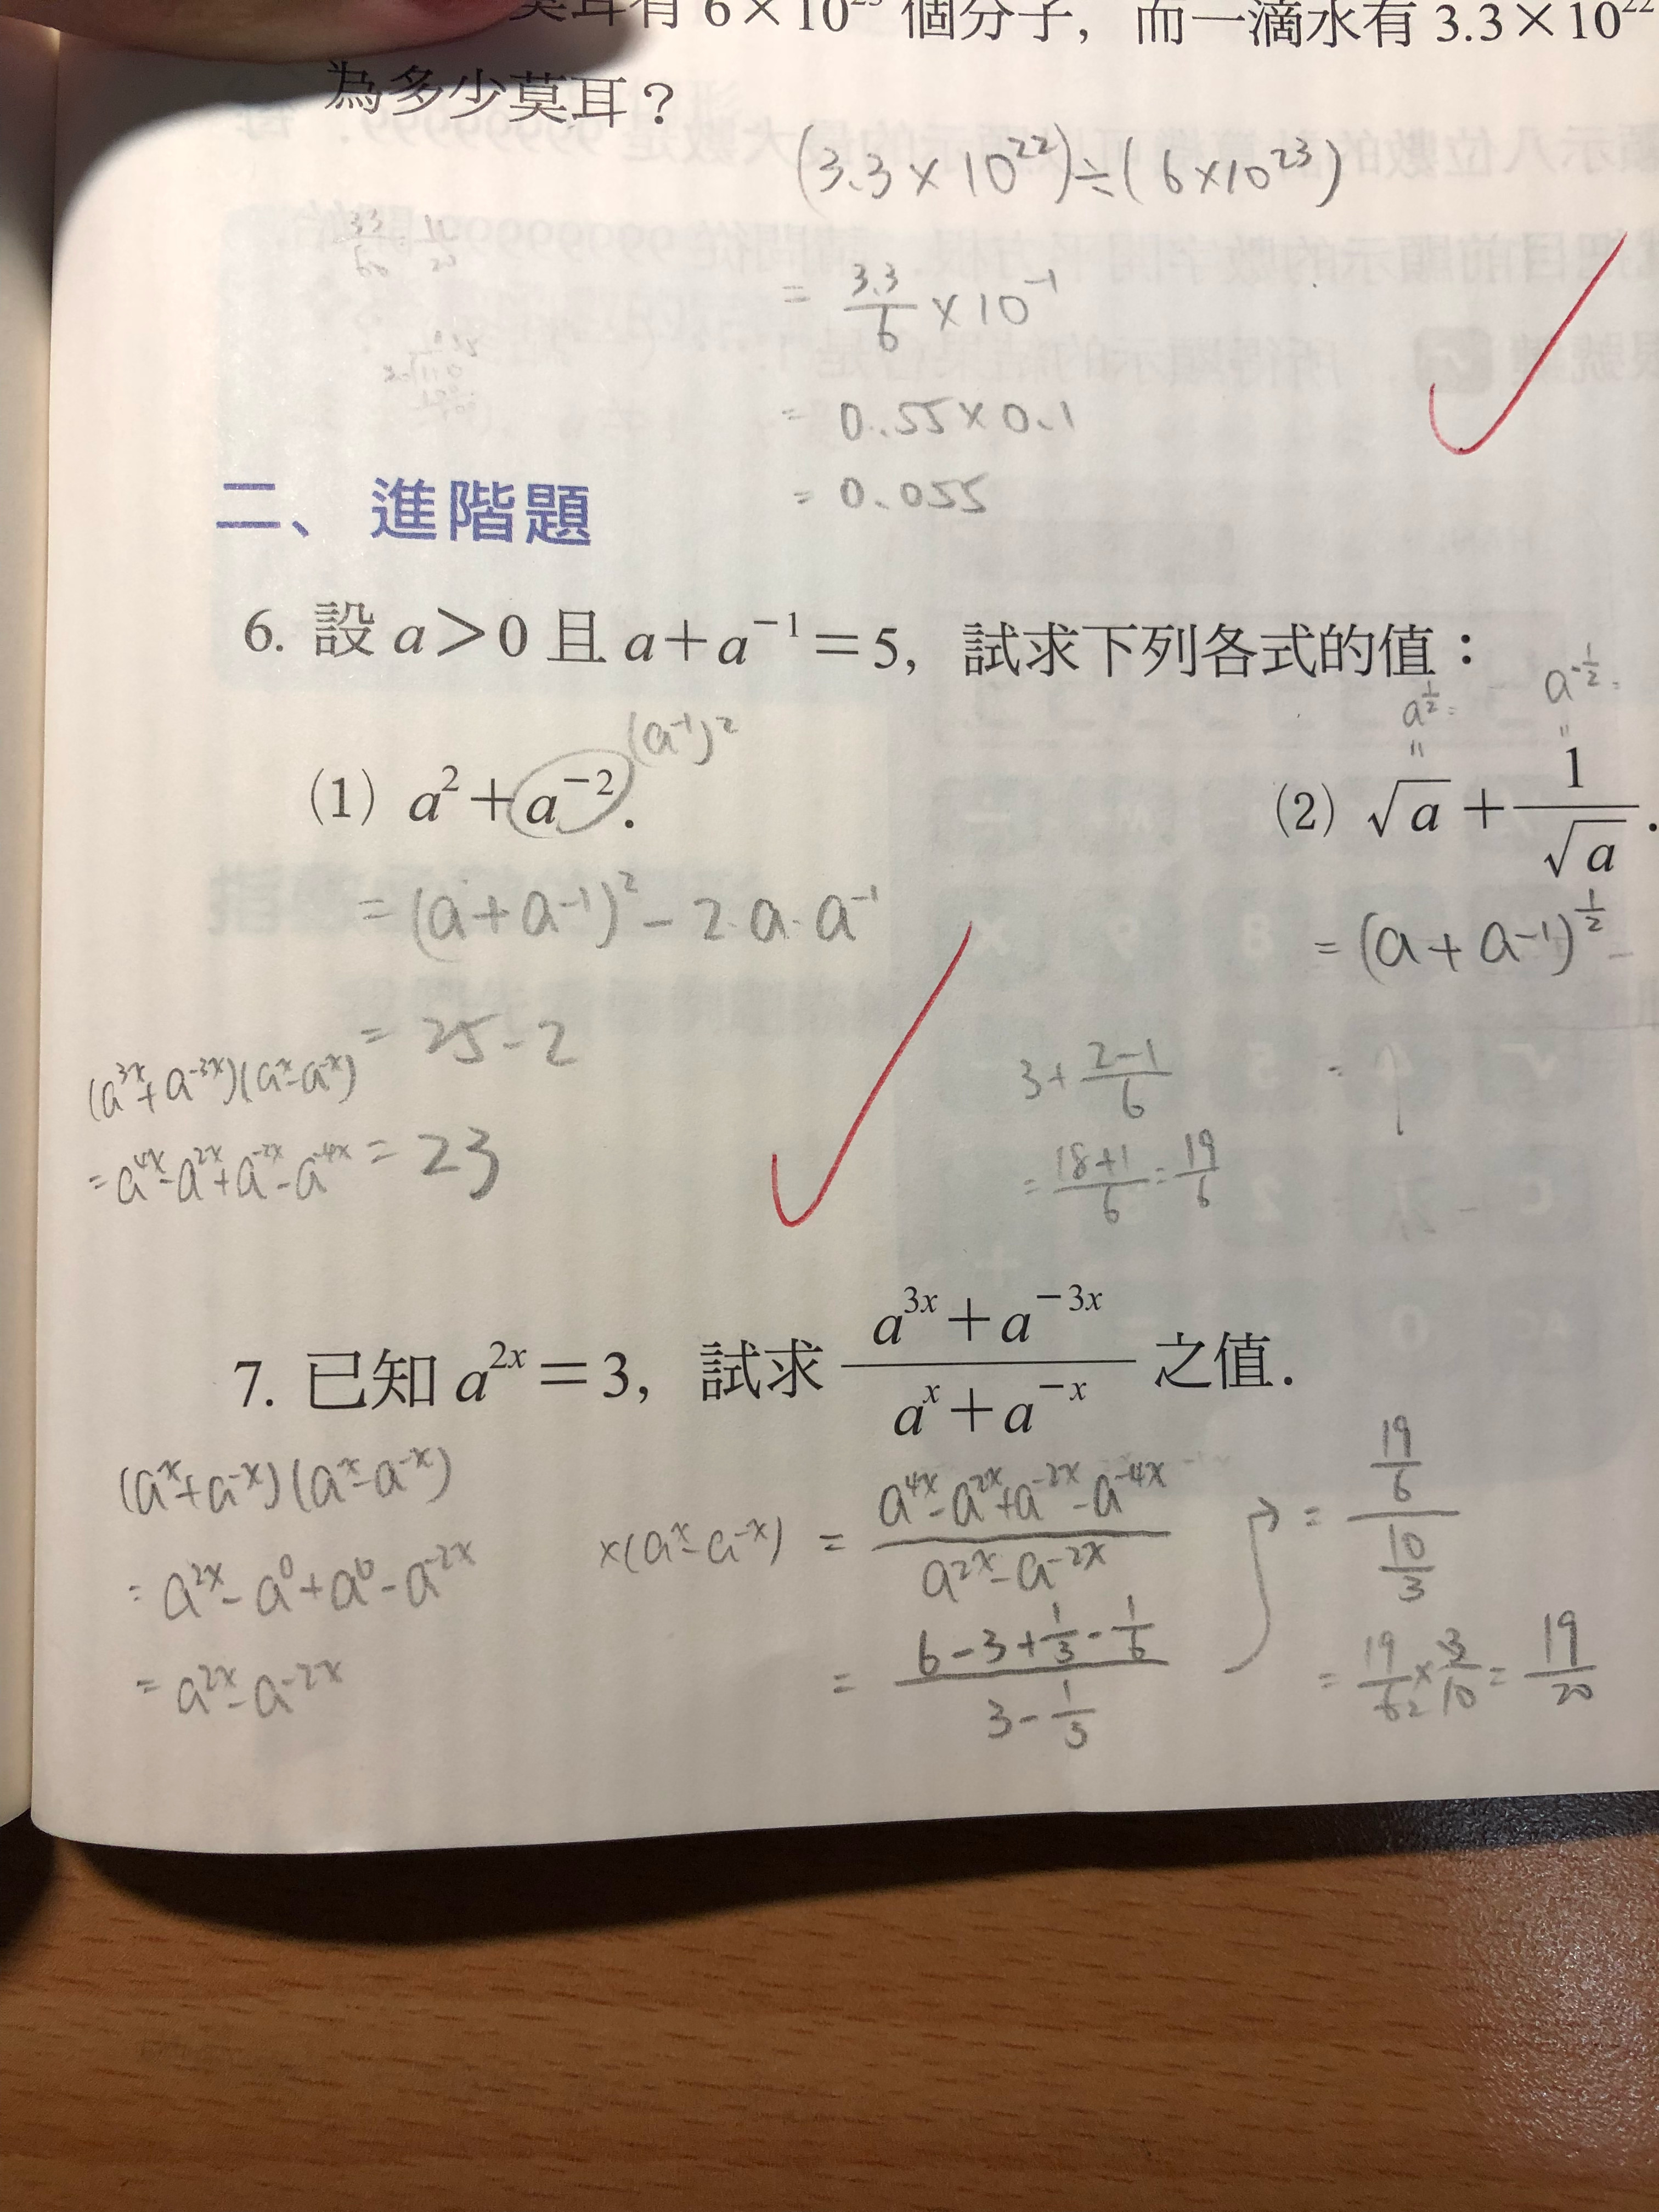 莫耳有 6×10²³ 個分子，而一滴水有 3.3×10²²
為多少莫耳？
(3.3×10²²)÷(6×10²³)
33/60 = 11/20
= 3.3/6 × 10⁻¹
= 0.55×0.1
= 0.055
二、進階題
6. 設 a＞0 且 a＋a⁻¹＝5，試求下列各式的值：
(1) a²＋a⁻².
(a⁻¹)²
= (a+a-1)² - 2·a·a⁻¹
= 25-2
= 23
(2) √a＋1/√a.
a^(1/2)=
a^(-1/2)=
= (a+a-1)^(1/2) -
=
3+(2-1)/6
= (18+1)/6 = 19/6
(a^3x+a^-3x)(a^x-a^-x)
= a^4x-a^2x+a^-2x-a^-4x
7. 已知 a^2x＝3，試求 (a^3x＋a^-3x)/(a^x＋a^-x) 之值.
(a^x+a^-x)(a^x-a^-x)
= a^2x-a⁰+a⁰-a^-2x
= a^2x-a^-2x
×(a^x-a^-x) = (a^4x-a^2x+a^-2x-a^-4x)/(a^2x-a^-2x)
= (6-3+1/3-1/6)/(3-1/3)
= (19/6)/(10/3)
= 19/6 × 3/10 = 19/20